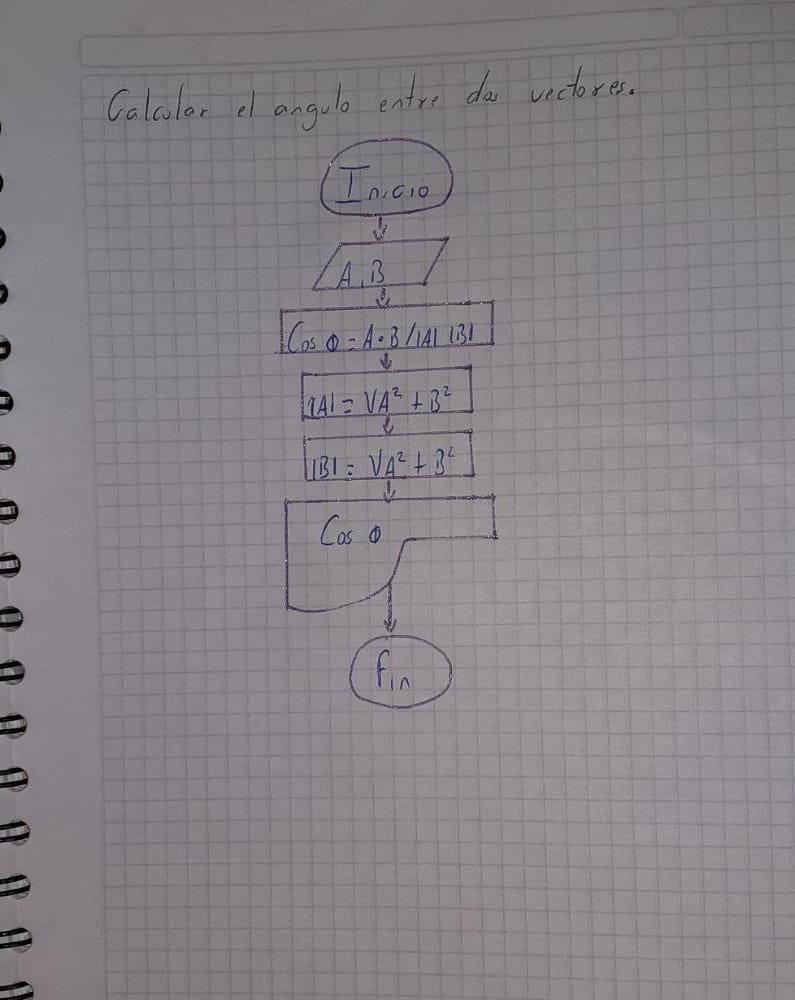 Calcular el angulo entre dos vectores.
Inicio
A, B
Cos Φ = A•B/|A| |B|
|A| = √A² + B²
|B| = √A² + B²
Cos Φ
Fin